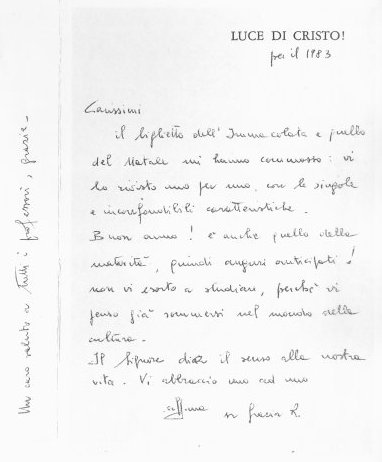 LUCE DI CRISTO!
per il 1983
Carissimi
il biglietto dell'Immacolata e quello
del Natale mi hanno commosso: vi
ho rivisto uno per uno, con le singole
e inconfondibili caratteristiche.
Buon anno! è anche quello della
maturità, quindi auguri anticipati!
non vi esorto a studiare, perché vi
penso già sommersi nel mondo della
cultura.
Il Signore dia il senso alla nostra
vita. Vi abbraccio uno ad uno
aff.ma
sr Grazia R.
Un caro saluto a tutti i professori, grazie.